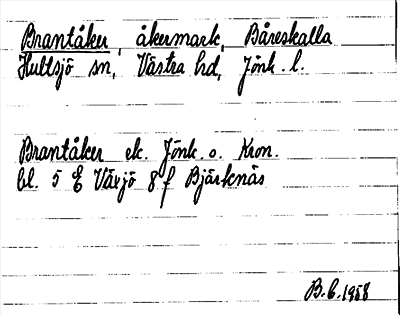 Brantåker, åkermark, Båreskalla
Hultsjö sn, Västra hd, Jönk. l.
Brantåker ek. Jönk. o. Kron.
bl. 5 E Växjö 8 f Bjärknäs
B. C. 1958